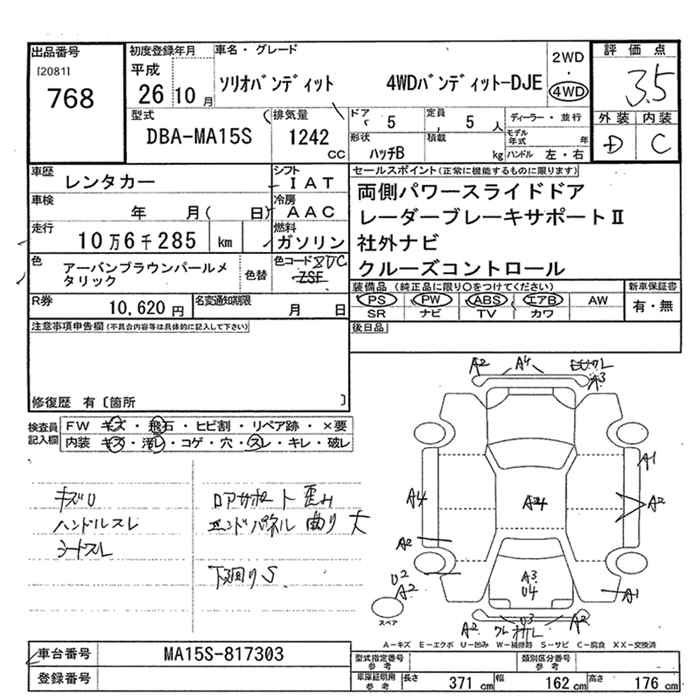 出品番号
[2081]
768
初度登録年月
平成
26 10 月
車名・グレード
ソリオバンディット 4WDバンディットーDJE
2WD
・
4WD
評価点
3.5
外装 内装
D C
型式
DBA-MA15S
排気量
1242
CC
ドア
5
定員
5 人
形状
ハッチB
積載
kg
ディーラー・並行
モデル年式 年
ハンドル 左・右
車歴
レンタカー
シフト
IAT
車検
年 月( 日)
冷房
AAC
走行
10万6千285 km
燃料
ガソリン
色
アーバンブラウンパールメタリック
色替
色コード
ZSF
R券
10,620 円
名変通知期限
月 日
セールスポイント(正常に機能するものに限ります)
両側パワースライドドア
レーダーブレーキサポートⅡ
社外ナビ
クルーズコントロール
装備品 (純正品に限り○をつけてください) 新車保証書
PS PW ABS エアB AW
SR ナビ TV カワ
有・無
後日品
注意事項申告欄(不具合内容等は具体的に記入して下さい)
修復歴 有〔箇所 〕
検査員記入欄
FW キズ・飛石・ヒビ割・リペア跡・×要
内装 キズ・汚レ・コゲ・穴・スレ・キレ・破レ
キズU
ハンドルスレ
シートスレ
ロアサポート歪み
エンドパネル曲り大
下廻りS
A2 A4
A3
A1
A4
A2
A2
U2
A2
A3
U4
A1
A2
U3
A2
スペア
A-キズ E-エクボ U-凹み W-補修跡 S-サビ C-腐食 XX-交換済
車台番号
MA15S-817303
登録番号
型式指定番号
参考
類別区分番号
参考
車庫証明用
参考
長さ 371 cm 幅 162 cm 高さ 176 cm